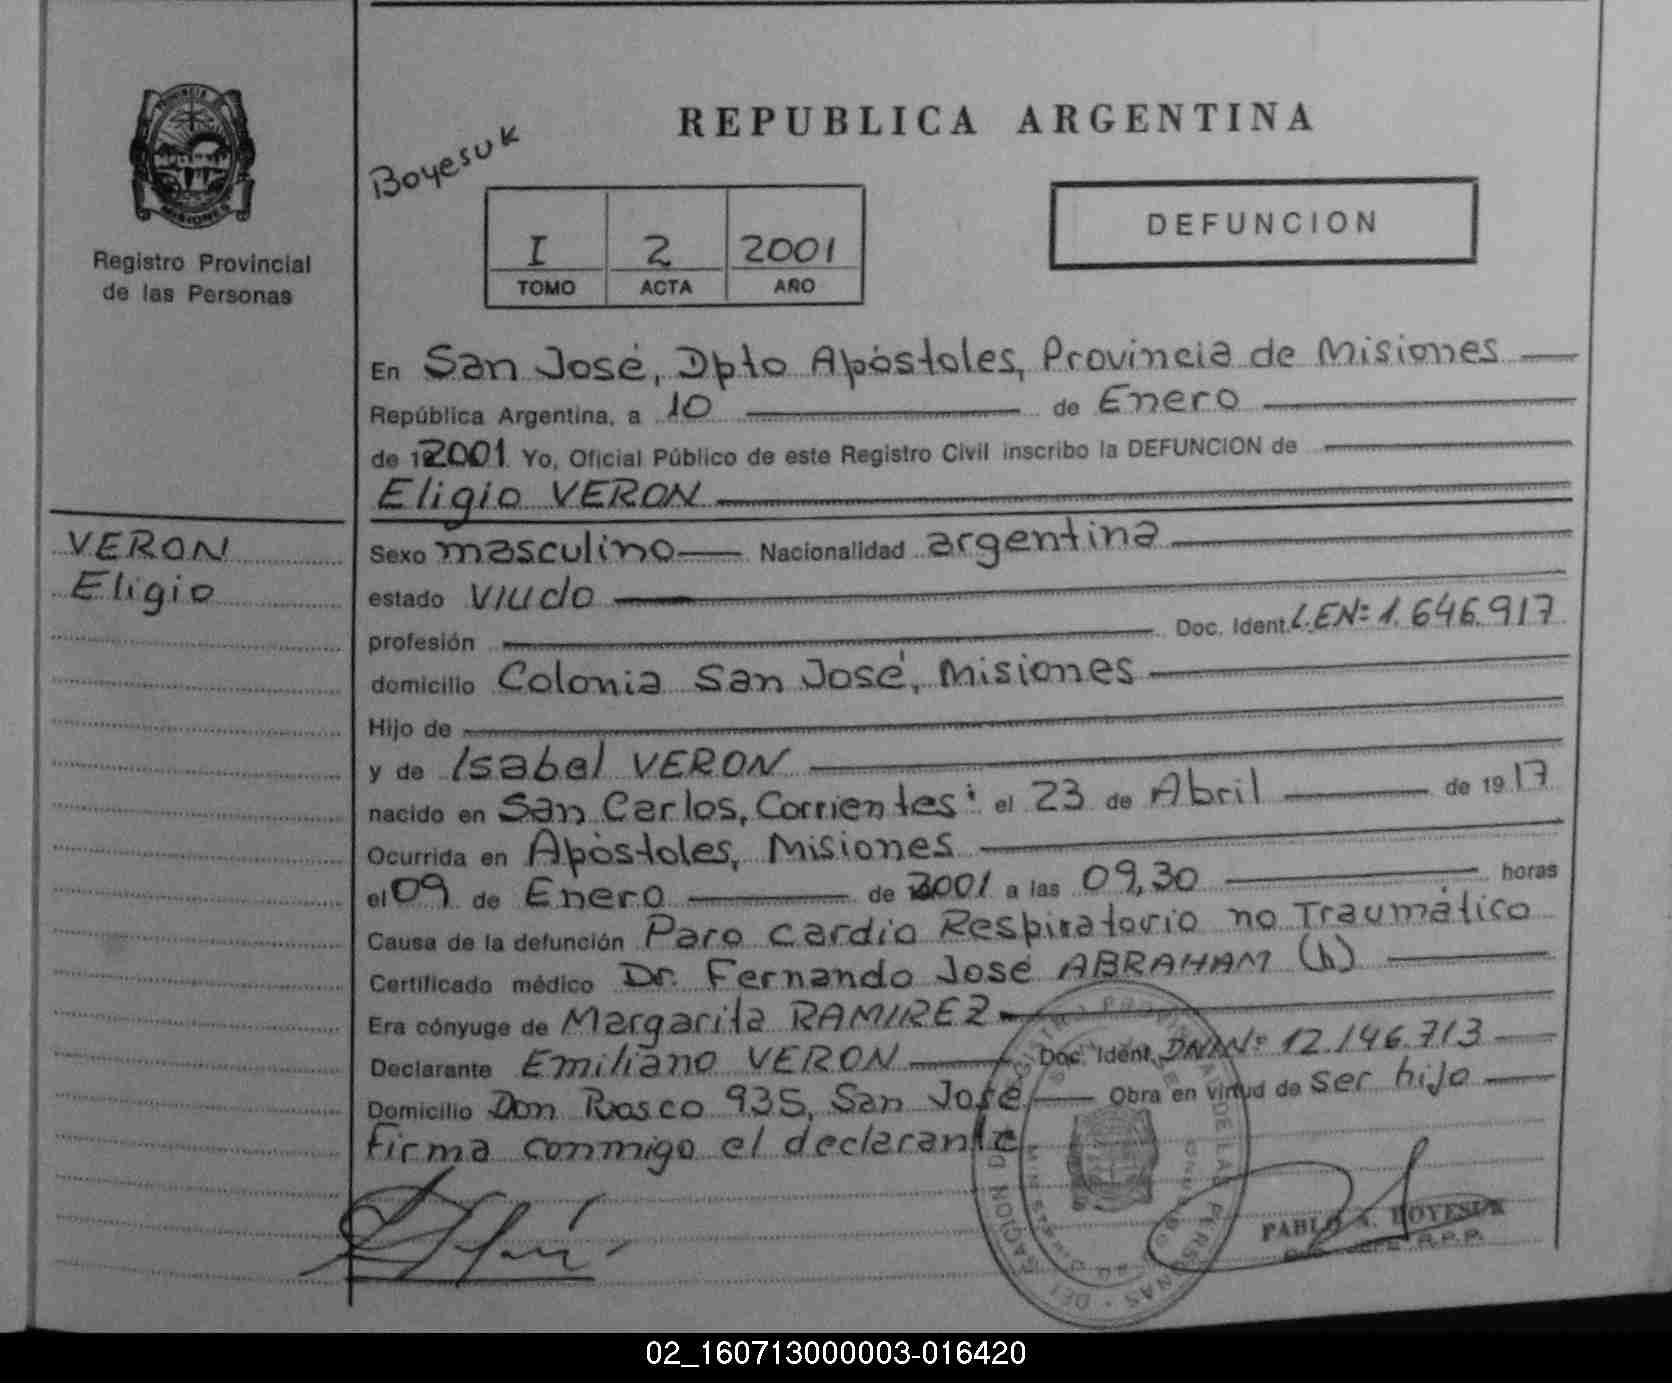 REPUBLICA ARGENTINA
Boyesuk
I 2 2001
TOMO ACTA AÑO
DEFUNCION
PROVINCIA DE
MISIONES
Registro Provincial
de las Personas
VERON
Eligio
En San José, Dpto Apóstoles, Provincia de Misiones
República Argentina, a 10 de Enero
de 192001 Yo, Oficial Público de este Registro Civil inscribo la DEFUNCION de
Eligio VERON
Sexo masculino Nacionalidad argentina
estado Viudo
profesión Doc. Ident. L.E.Nº 1.646.917
domicilio Colonia San José, Misiones
Hijo de
y de Isabel VERON
nacido en San Carlos, Corrientes el 23 de Abril de 1917
Ocurrida en Apóstoles, Misiones
el 09 de Enero de 2001 a las 09,30 horas
Causa de la defunción Paro cardio Respiratorio no Traumático
Certificado médico Dr. Fernando José ABRAHAM (h)
Era cónyuge de Margarita RAMIREZ
Declarante Emiliano VERON Doc. Ident. DNI Nº 12.146.713
Domicilio Don Bosco 935, San José Obra en virtud de ser hijo
firma conmigo el declarante
PABLO A. BOYESUK
R.P.P.
02_160713000003-016420